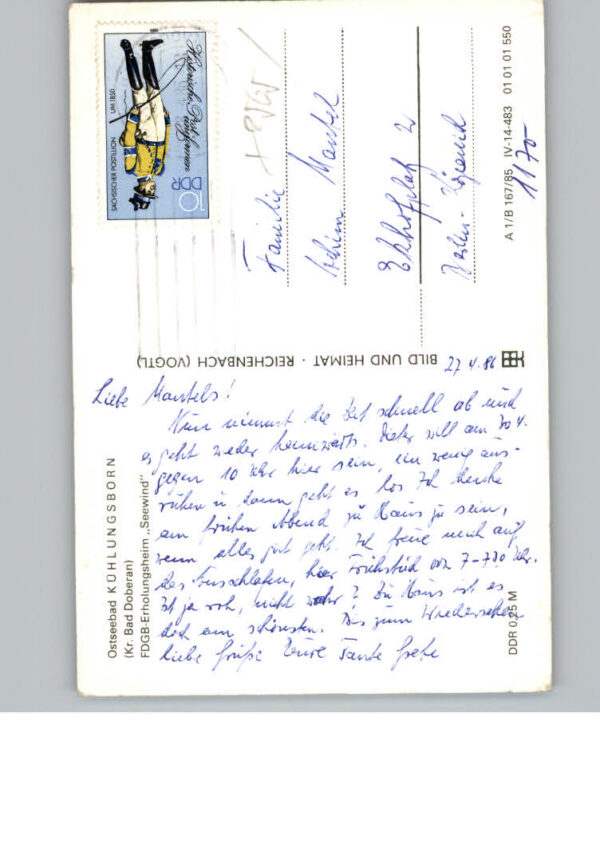 Ostseebad KÜHLUNGSBORN
(Kr. Bad Doberan)
FDGB-Erholungsheim „Seewind"
27.4.86
Liebe Mantels!
Nun nimmt die Zeit schnell ab und
es geht wieder heimwärts. Dieter will am 30.4.
gegen 10 Uhr hier sein, ein wenig aus-
ruhen u. dann geht es los. Ich denke
am frühen Abend zu Haus zu sein,
wenn alles gut geht. Ich freue mich auf
das Ausschlafen, hier Frühstück von 7-7.30 Uhr.
Ist ja roh, nicht wahr? Zu Haus ist es
doch am schönsten. Bis zum Wiedersehen
liebe Grüße Eure Tante Grete
DDR 0,25 M
BILD UND HEIMAT · REICHENBACH (VOGTL)
Historische Post-
uniformen
SÄCHSISCHER POSTILLION UM 1850
DDR
10
Familie
Achim Mantel
Ekhofplatz 2
Berlin-Köpenick
1170
A 1/B 167/85 IV-14-483 01 01 01 550